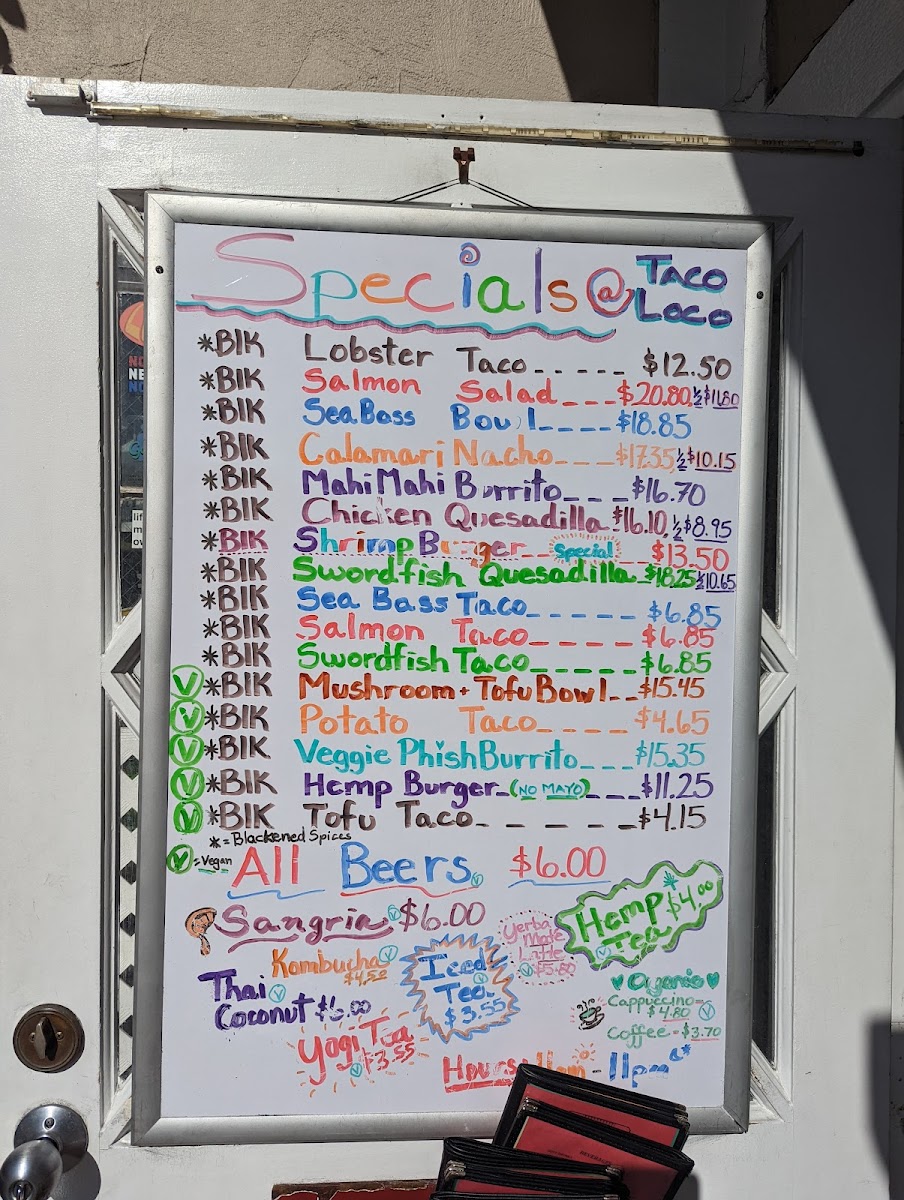 Specials @ TACO LOCO
*BIK Lobster Taco_____ $12.50
*BIK Salmon Salad___$20.80,½$11.80
*BIK Sea Bass Bowl____$18.85
*BIK Calamari Nacho___$17.35½$10.15
*BIK Mahi Mahi Burrito___$16.70
*BIK Chicken Quesadilla_$16.10,½$8.95
*BIK Shrimp Burger__ Special __$13.50
*BIK Swordfish Quesadilla_$18.25½10.65
*BIK Sea Bass Taco______$6.85
*BIK Salmon Taco______$6.85
*BIK Swordfish Taco_____$6.85
V *BIK Mushroom + Tofu Bowl__$15.45
V *BIK Potato Taco____$4.65
V *BIK Veggie Phish Burrito___$15.35
V *BIK Hemp Burger_(NO MAYO)___$11.25
V *BIK Tofu Taco______$4.15
* = Blackened Spices
V = Vegan
All Beers V $6.00
Sangria V $6.00
Hemp Tea $4.00 V
Yerba Mate Latte V $5.80
Kombucha V $4.50
Iced Tea V $3.55
Thai V Coconut $6.00
Yogi Tea V $3.55
Cappuccino= $4.80 V
Coffee = $3.70
Hours - 11pm